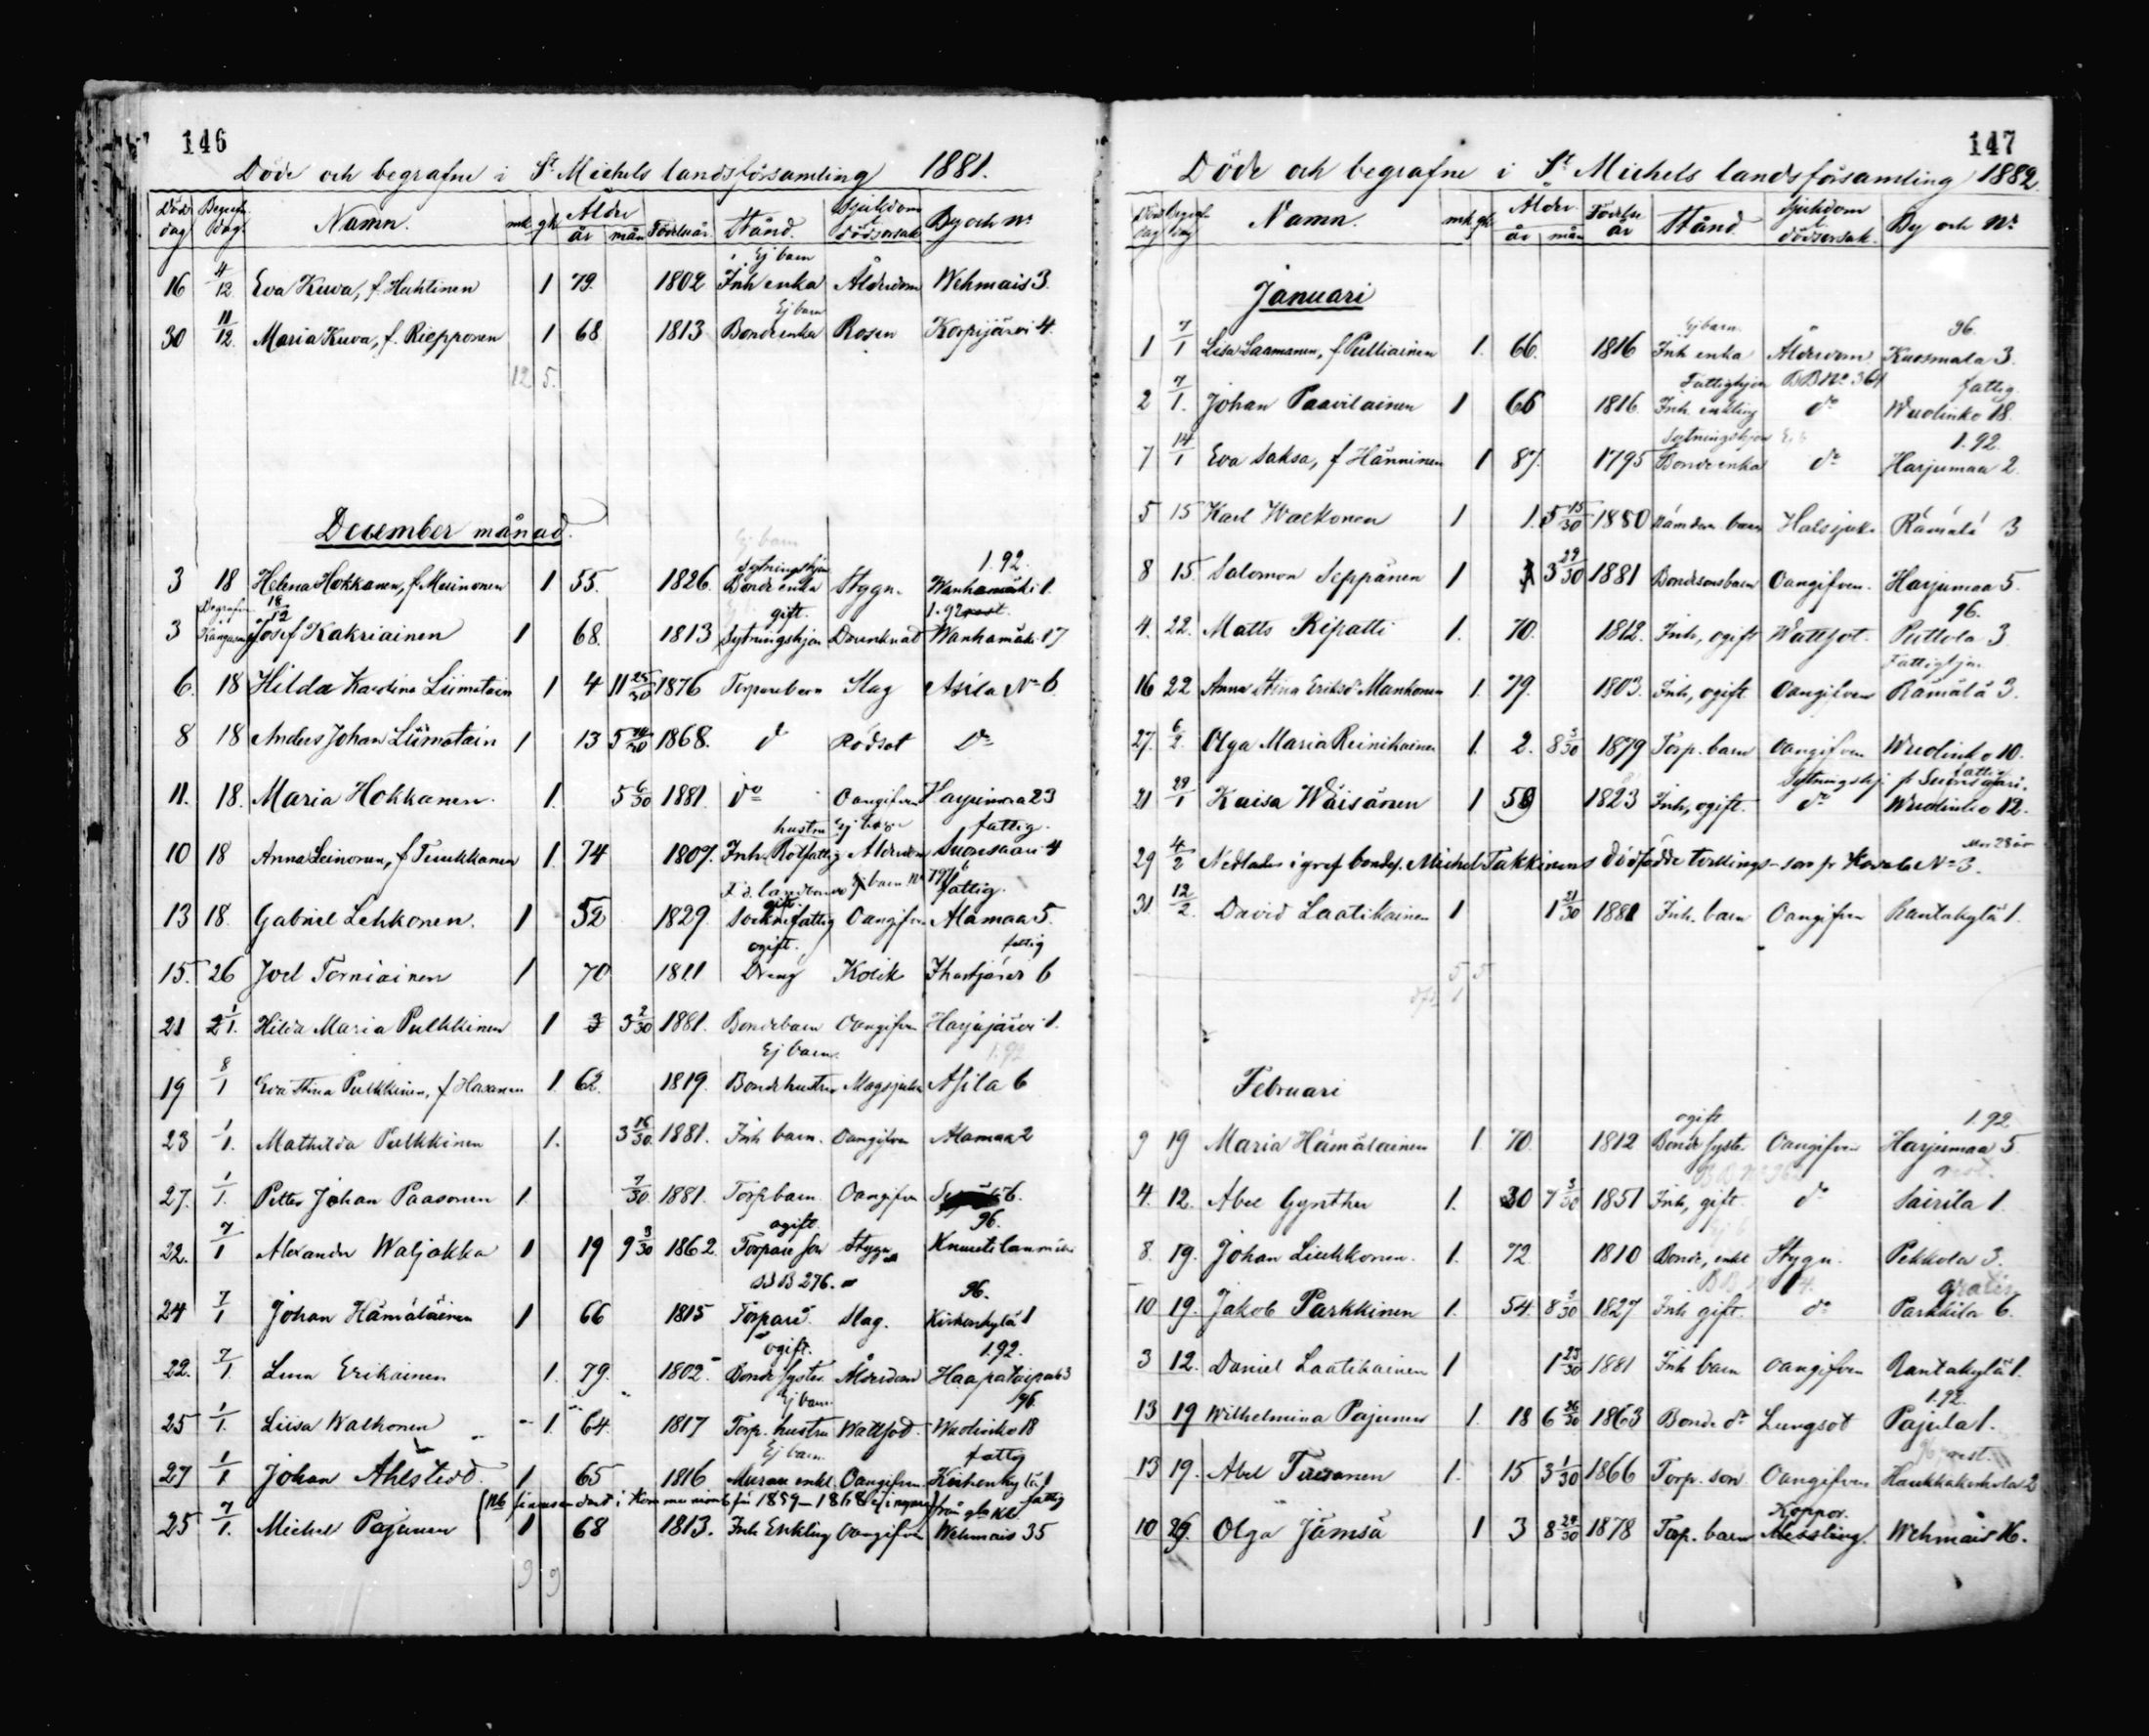 146
Döde och begrafne i St Michels landsförsamling 1881.
Död dag Begrafn dag Namn. mk gk Ålder år mån Födelseår Stånd. Sjukdom dödsorsak By och No
Ej barn
16 4/12 Eva Kuva, f. Hahtinen 1 79. 1802 Inh enka Ålderdom Wehmais 3.
Ej barn
30 11/12. Maria Kuva, f. Riepponen 1 68 1813 Bonde enka Rosen Korpijärvi 4.
12 5.
December månad.
Ej barn
Sytningshjon 1.92.
3 18 Helena Hokkanen, f. Muinonen 1 55. 1826. Bonde enka Stygn. Wanhamäki 1.
Begrafven 18/12 gift. 1.92
3 Josef Kakriainen 1 68. 1813 Sytningshjon Wanhamäki 17
6. 18 Hilda Karolina Liimatain 1 4 11 25/30 1876 Torparebarn Slag Asila No 6.
8 18 Anders Johan Liimatain 1 13 5 14/30 1868. do Rödsot Do
11. 18. Maria Hokkanen. 1. 5 6/30 1881. do Oangifven Harjumaa 23
hustru Ej barn fattig.
10 18 Anna Leinonen, f Tuukkanen 1. 74 1807. Inh. Rotfattig Ålderdom Suonsaari 4
F.d. landbonde Ej barn fattig.
gift.
13 18. Gabriel Lehkonen. 1 52 1829. Sockne fattig Oangifven Alamaa 5.
ogift. fattig
15. 26 Joel Torniainen 1 70 1811 Dreng Kolik Ihastjärvi 6
21 1/1. Hilda Maria Pulkkinen 1 3 3 2/30 1881. Bondebarn Oangifven Harjujärvi 1.
Ej barn. 1.92
19 8/1 Eva Stina Pulkkinen, f Haxanen 1. 62. 1819. Bondehustru Magsjukd Asila 6
23 1/1. Mathilda Pulkkinen 1. 3 16/30 1881. Inh barn. Oangifven Alamaa 2
27. 1/1. Petter Johan Paasonen 1. 7/30 1881. Torp barn. Oangifven 6.
ogift. 96.
22. 7/1 Alexander Waljakka 1 19 9 3/30 1862. Torpare son Stygn
BB 276. 96.
24 7/1 Johan Hämäläinen 1 66 1815 Torpare Slag. Kirkonkylä 1
ogift. 1.92.
22. 7/1. Lena Erikainen 1. 79. 1802. Bonde syster Ålderdom Haapataipal 3
Ej barn 96.
25 1/1. Liisa Walkonen 1. 64. 1817 Torp. hustru Wattsot. Wuolinko 18
Ej barn fattig
27 1/1 Johan Ahlstedt. 1. 65 1816 Murare enkl. Oangifven Kirkonkylä 1
NB finnes endast i kommunionb för 1859–1868 fattig
25 7/1. Michel Pajunen 1 68 1813. Inh Enkling Oangifven Wehmais 35
9 9
147
Döde och begrafne i St Michels landsförsamling 1882
Död dag begraf dag Namn. mk gk Ålder år mån Födelse år Stånd Sjukdom dödsorsak. By och No
Januari
Ej barn. 96.
1 7/1 Lisa Laamanen, f Pulliainen 1. 66. 1816 Inh enka Ålderdom Kuosmala 3.
Fattighjon BB No 364 fattig.
2 7/1. Johan Paavilainen 1 66 1816. Inh. enkling do Wuolinko 18.
Sytningshjon 1.92
7 14/1 Eva Saksa, f Hänninen 1 87. 1795 Bonde enka do Harjumaa 2.
5 15 Karl Walkonen 1 1. 5 15/30 1880 barn Halssjuk. Rämälä 3
8 15. Salomon Seppänen 1 3 29/30 1881 Bondesonsbarn Oangifven. Harjumaa 5.
96.
4. 22. Matts Ripatti 1. 70. 1812. Inh, ogift Wattsot. Puttola 3
Fattighjon
16 22 Anna Stina Eriksdr Manhonen 1. 79. 1803. Inh, ogift Oangifven Rämälä 3.
27. 6/2. Olga Maria Reinikainen 1. 2. 8 3/30 1879 Torp. barn Oangifven Wuolinko 10.
Sytningshj. fr Suonsaari. fattig
21 29/1 Kaisa Wäisänen 1 59 1823 Inh, ogift. do Wuolinko 12.
Mor 28 år
29 4/2 Nedlades i graf bondes. Michel Takkinens dödfödde tvillings-son fr No 3.
31 12/2. David Laatikainen 1 1 21/30 1881 Inh. barn Oangifven Rantakylä 1.
5 5
1
Februari
ogift 1.92
9 19 Maria Hämäläinen 1. 70. 1812 Bonde syster Oangifven Harjumaa 5
4. 12. Abel Gynther 1. 30 7 3/30 1851 Inh, gift. do Sairila 1.
8. 19. Johan Liukkonen. 1. 72. 1810 Bonde, enkl Stygn. Pekkola 3.
gratis
10 19. Jakob Parkkinen 1. 54. 8 3/30 1827 Inh gift. do Parkkila 6.
3 12. Daniel Laatikainen 1 1 23/30 1881 Inh barn Oangifven Rantakylä 1.
1.92.
13 19 Wilhelmina Pajunen 1. 18 6 26/30 1863 Bonde dr Lungsot Pajula 1.
13 19. Abel Tiusanen 1. 15 3 1/30 1866 Torp. son Oangifven 2
Koppor.
10 26. Olga Jämsä 1 3 8 29/30 1878 Torp. barn Messling. Wehmais 16.